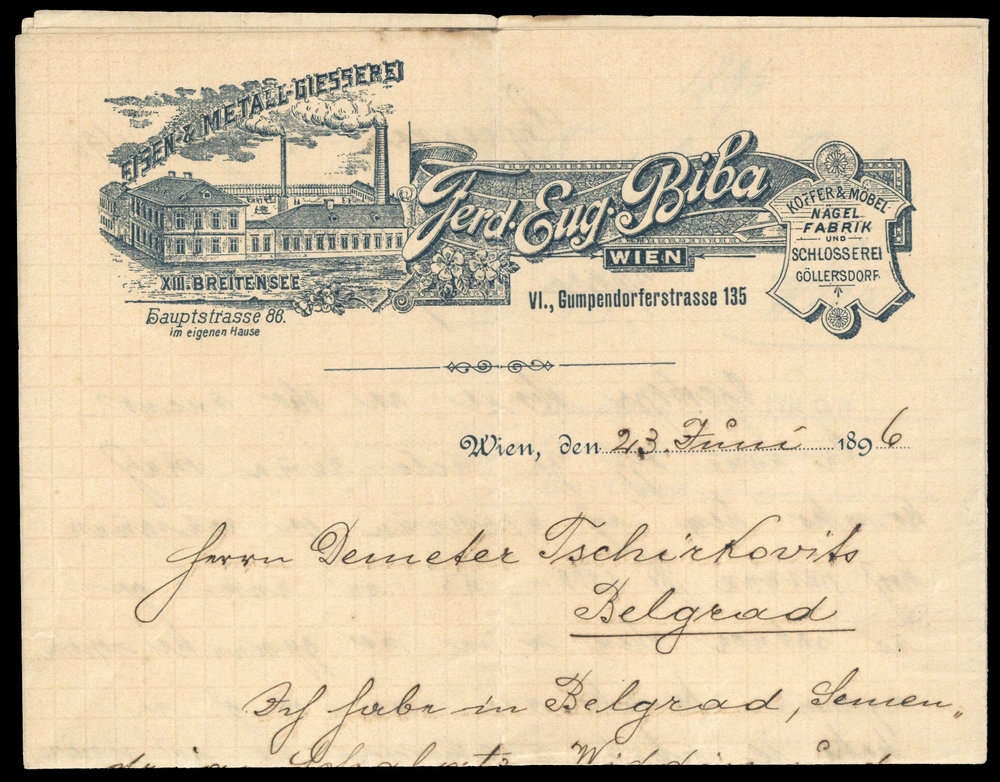 EISEN- & METALL-GIESSEREI
XIII. BREITENSEE
Hauptstrasse 86.
im eigenen Hause
Ferd. Eug. Biba
WIEN
VI., Gumpendorferstrasse 135
KOFFER & MÖBEL
NÄGEL
FABRIK
UND
SCHLOSSEREI
GÖLLERSDORF
Wien, den 23. Juni 1896
Herrn Demeter Tschirkovits
Belgrad
Ich habe in Belgrad, Semen„
Widdin